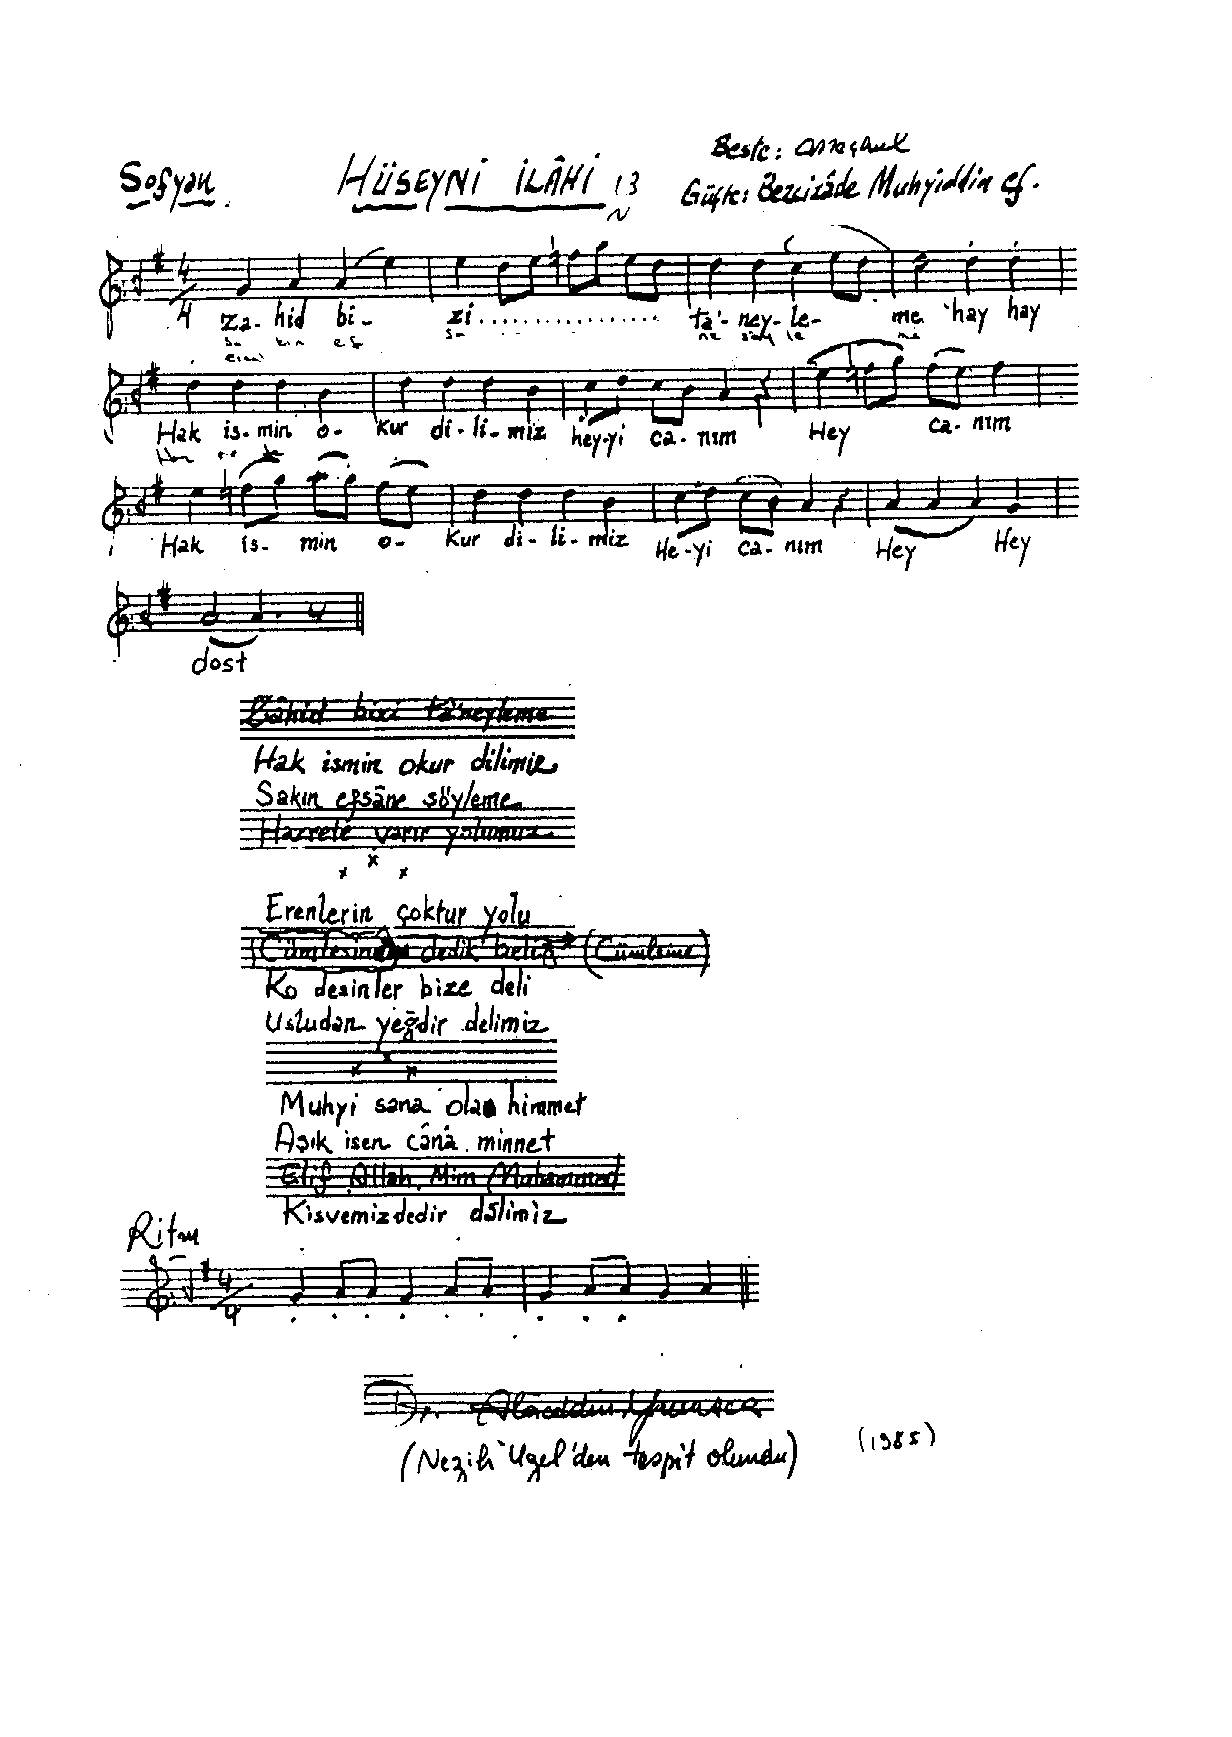 Sofyan. HÜSEYNİ İLÂHİ 13
Beste:
Güfte: Bezcizâde Muhyiddin ef.
4/4 Za- hid bi- zi.................. ta'- ney- le- me hay hay
Hak is- min o- kur di- li- miz hey-yi ca- nım Hey ca- nım
Hak is- min o- kur di- li- miz He-yi ca- nım Hey Hey
dost
Zâhid bizi tâ'neyleme
Hak ismin okur dilimiz
Sakın efsâne söyleme
Hazrete varır yolumuz
x x x
Erenlerin çoktur yolu
Cümlesine dedik beliğ (Cümleine)
Ko desinler bize deli
Usludan yeğdir delimiz
x x x
Muhyi sana olan himmet
Aşık isen cânâ minnet
Elif Allah. Mim Muhammed
Kisvemizdedir dâlimiz
Ritm
4/4
Dr. Alâeddin Yavaşca
(Nezih Uzel'den tespit olundu) (1985)